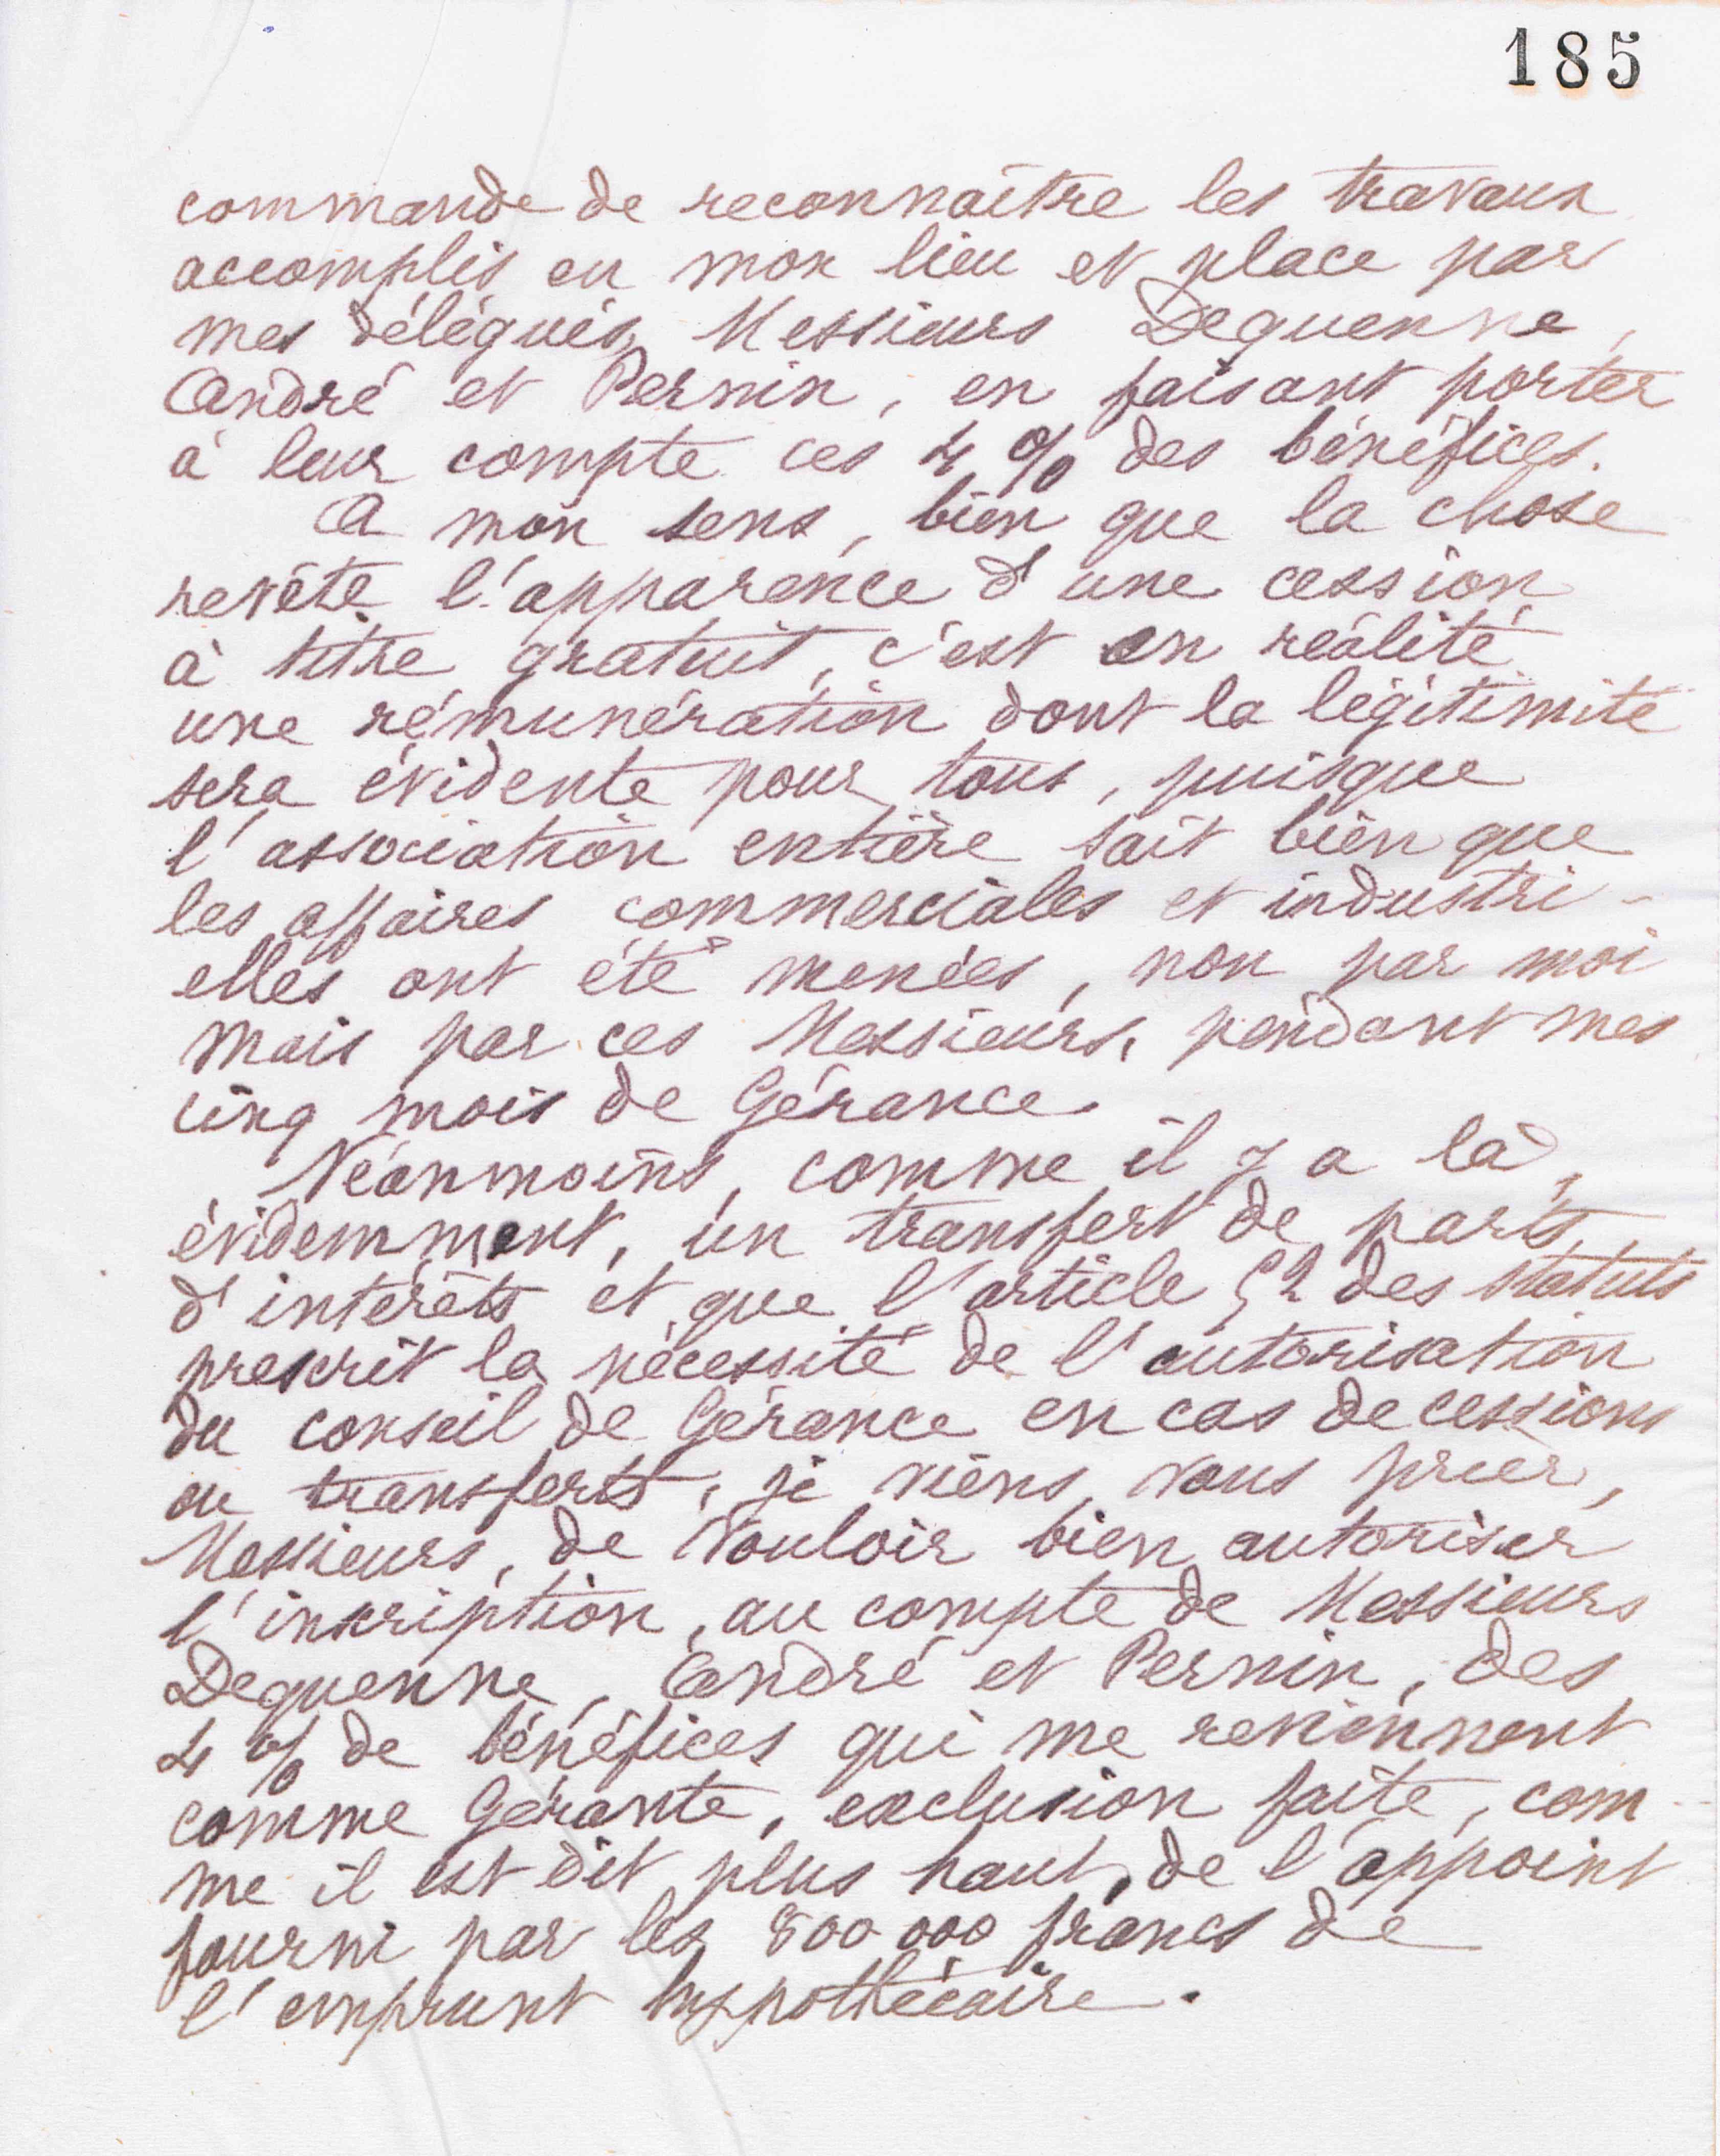 185
commande de reconnaître les travaux
accomplis en mon lieu et place par
mes délégués, Messieurs Dequenne,
André et Pernin, en faisant porter
à leur compte ces 4 % des bénéfices.
A mon sens, bien que la chose
revête l'apparence d'une cession
à titre gratuit, c'est en réalité
une rémunération dont la légitimité
sera évidente pour tous, puisque
l'association entière sait bien que
les affaires commerciales et industri-
elles ont été menées, non par moi
mais par ces Messieurs, pendant mes
cinq mois de Gérance.
Néanmoins, comme il y a là,
évidemment, un transfert de parts
d'intérêts et que l'article 52 des statuts
prescrit la nécessité de l'autorisation
du conseil de Gérance en cas de cessions
ou transferts, je viens vous prier,
Messieurs, de vouloir bien autoriser
l'inscription, au compte de Messieurs
Dequenne, André et Pernin, des
4 % de bénéfices qui me reviennent
comme Gérante, exclusion faite, com-
me il est dit plus haut, de l'appoint
fourni par les 800 000 francs de
l'emprunt hypothécaire.